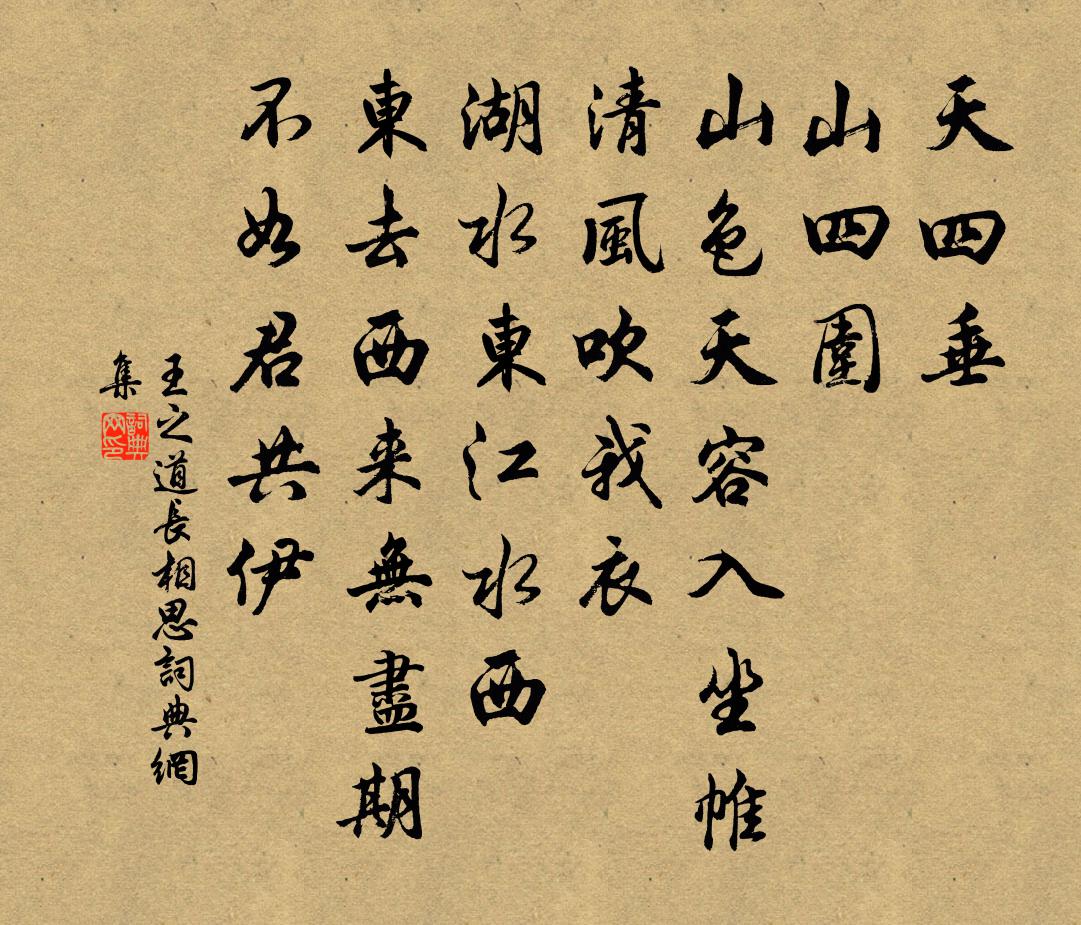 天四垂
山四圍
山色天容入坐帷
清風吹我衣
湖水東江水西
東去西来無盡期
不如君共伊
王之道長相思詞典網
集
詞典
网印